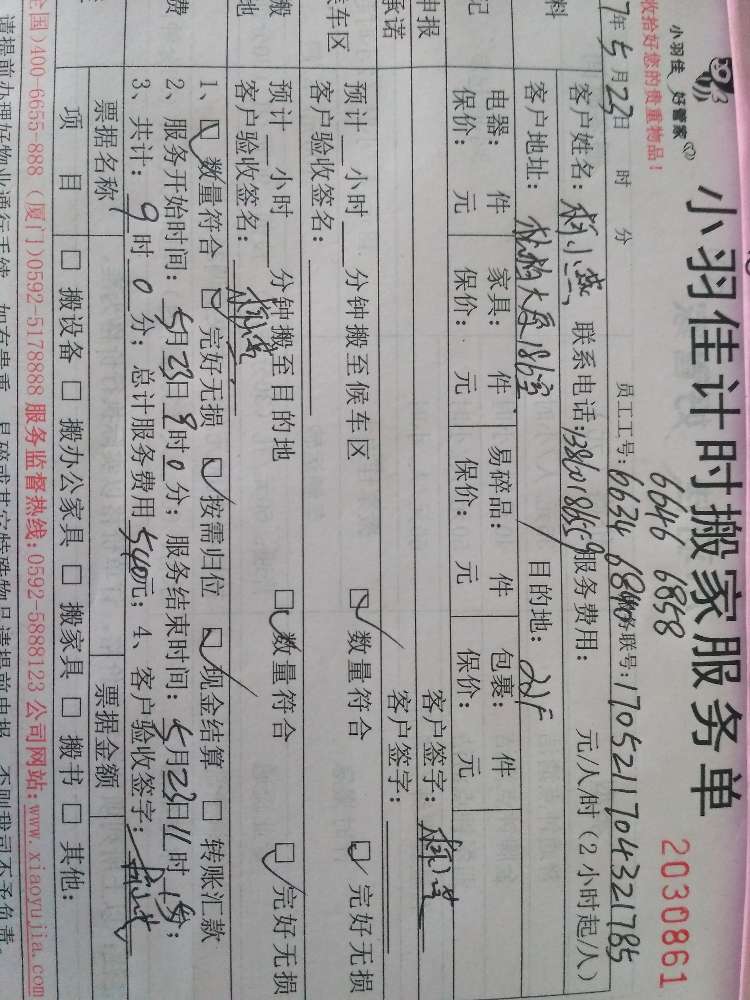 小羽佳 好管家
小羽佳计时搬家服务单
2030861
收拾好您的贵重物品！
6646 6858
7年5月23日 时 分 员工工号：6634 6840 服务联号：1705211704321785
客户姓名： 联系电话：13860186559 服务费用： 元/人/时（2小时起/人）
料
客户地址： 大厦18 目的地：
电器： 件 家具： 件 易碎品： 件 包裹： 件
记
保价： 元 保价： 元 保价： 元 保价： 元
申报
客户签字：
承诺
客户签字：
预计 小时 分钟搬至候车区 数量符合 完好无损
候车区
客户验收签名：
搬
预计 小时 分钟搬至目的地 数量符合 完好无损
地
客户验收签名：
1、 数量符合 完好无损 按需归位 现金结算 转账汇款
费
2、服务开始时间：5月23日9时0分；服务结束时间：5月23日11时 分；
3、共计：9时0分；总计服务费用540元；4、客户验收签字：
票据名称 票据金额
项 目 搬设备 搬办公家具 搬家具 搬书 其他：
全国)400-6655-888 (厦门)0592-5178888 服务监督热线:0592-5888123 公司网站:www.xiaoyujia.com
请提前办理好物业通行手续，如有贵重、易碎或其它特殊物品请提前申报，否则我司不予负责。